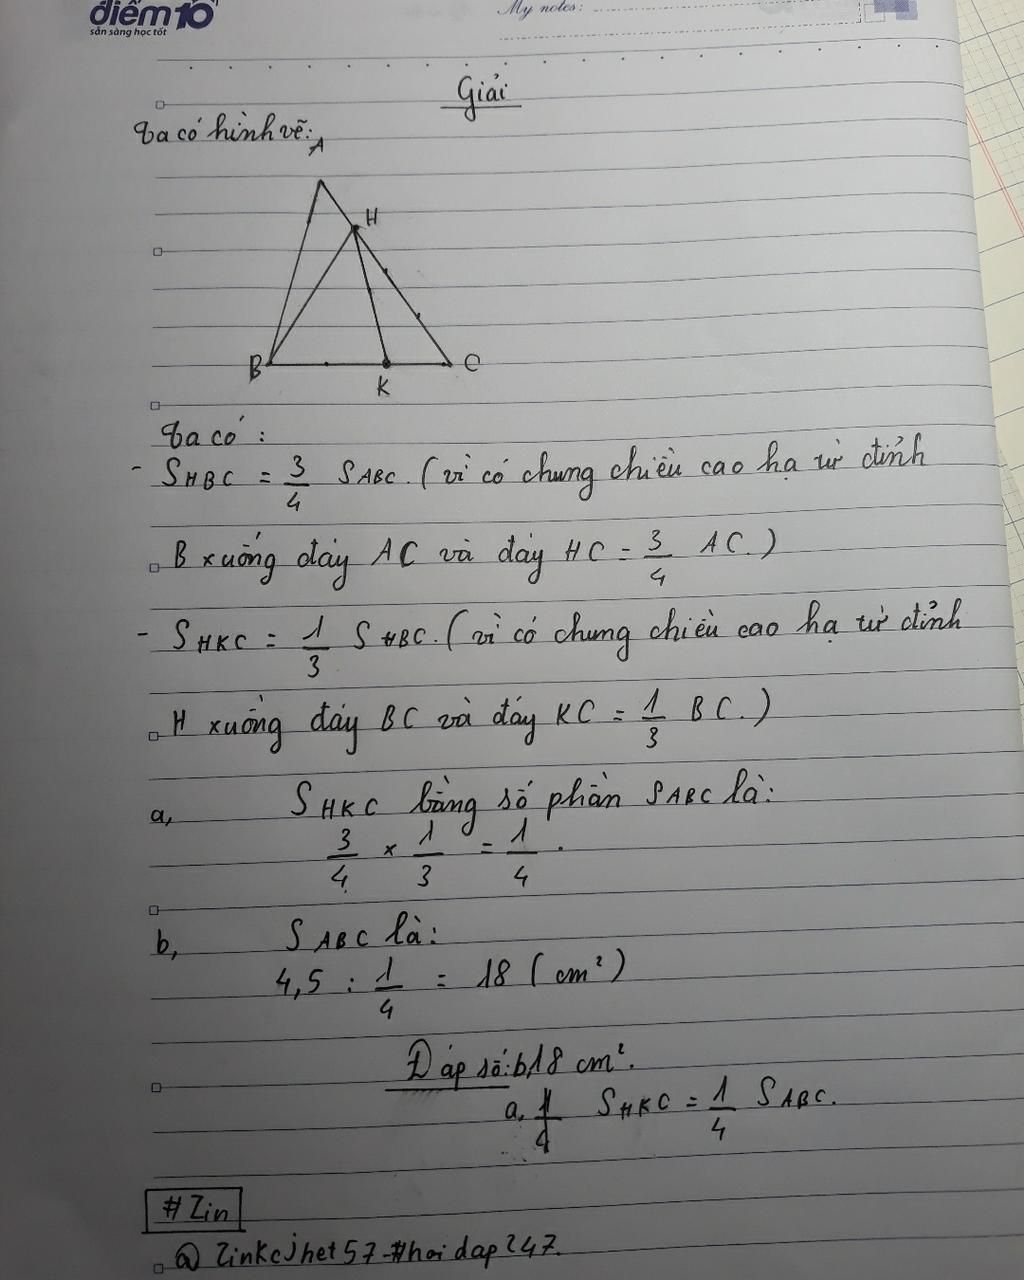 điểm10
sẵn sàng học tốt
My notes:
Giải
Ta có hình vẽ:
A
H
B
K
C
Ta có :
- SHBC = 3/4 SABC. (vì có chung chiều cao hạ từ đỉnh
B xuống đáy AC và đáy HC = 3/4 AC.)
- SHKC = 1/3 SHBC. (vì có chung chiều cao hạ từ đỉnh
H xuống đáy BC và đáy KC = 1/3 BC.)
a, SHKC bằng số phần SABC là:
3/4 × 1/3 = 1/4.
b, SABC là:
4,5 : 1/4 = 18 (cm²)
Đáp số: b, 18 cm².
a, SHKC = 1/4 SABC.
#Zin
@ Zinkcjhet57-#hoidap247.